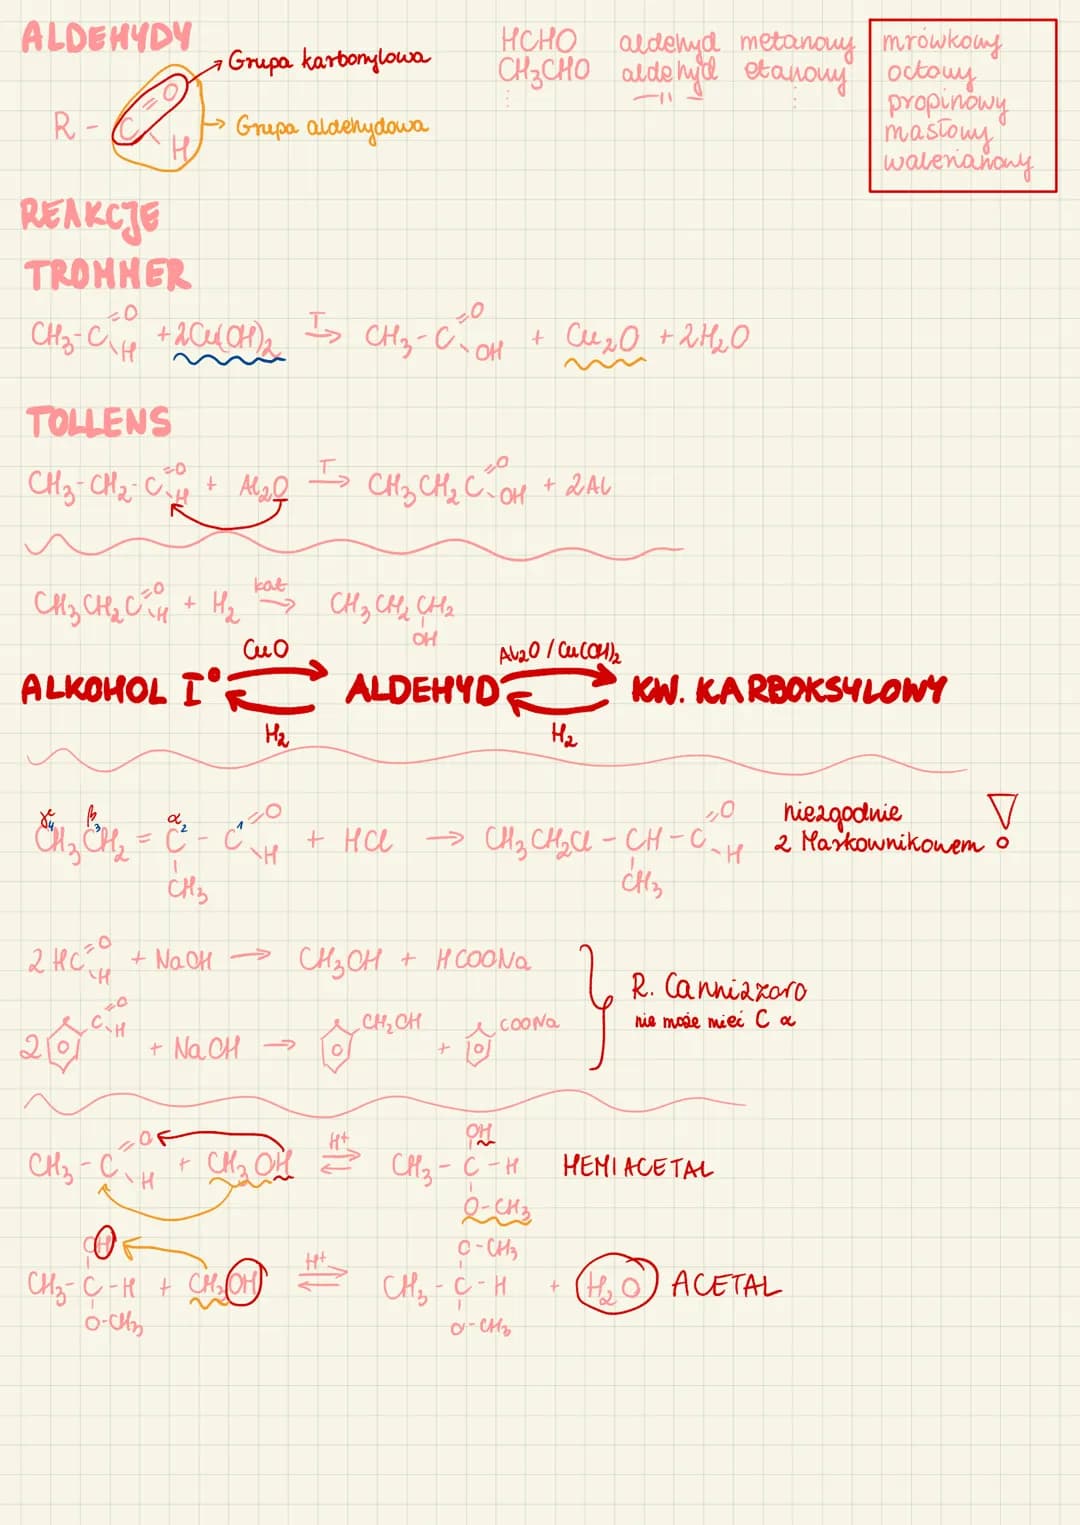 ALDEHYDY
Grupa karbonylowa
R - C =O H
Grupa aldehydowa
HCHO aldehyd metanowy
CH3CHO aldehyd etanowy
—11— 
mrówkowy
octowy
propinowy
masłowy
walerianowy
REAKCJE
TROMMER
CH3-C =O H + 2Cu(OH)2 T→ CH3-C =O OH + Cu2O + 2H2O
TOLLENS
CH3-CH2-C =O H + Al2O T→ CH3CH2C =O OH + 2Al
CH3CH2C =O H + H2 kat→ CH3CH2CH2 OH
CuO
Al2O / Cu(OH)2
ALKOHOL I° ⇄ ALDEHYD ⇄ KW. KARBOKSYLOWY
H2 H2
γ 4 β 3 α 2 1
CH3CH2 = C - C =O H + HCl → CH3CH2Cl - CH - C =O H
CH3 CH3
niezgodnie
z Markownikowem
2 HC =O H + NaOH → CH3OH + HCOONa
2 C =O H + NaOH → CH2OH + COONa
R. Cannizzaro
nie może mieć C α
CH3-C =O H + CH3OH H+ ⇄ CH3-C-H OH O-CH3 HEMIACETAL
CH3-C-H OH O-CH3 + CH3OH H+ ⇄ CH3-C-H O-CH3 O-CH3 + H2O ACETAL